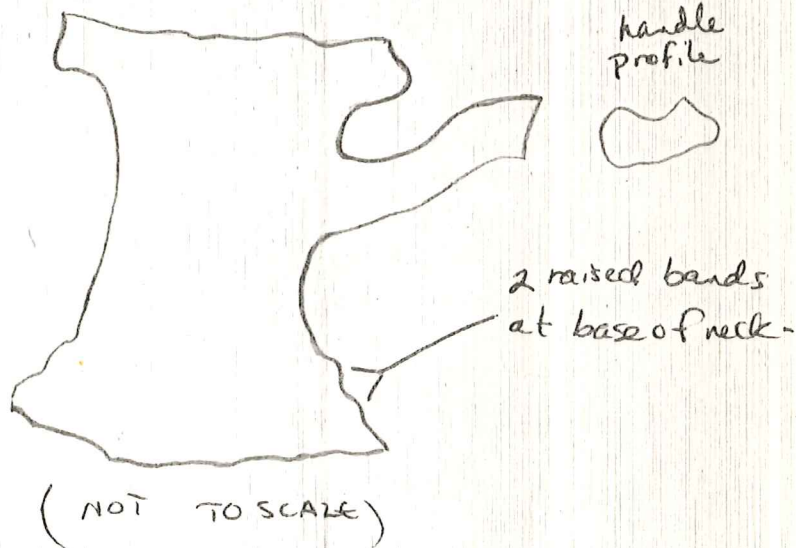 handle
profile
2 raised bands
at base of neck-
(NOT TO SCALE)